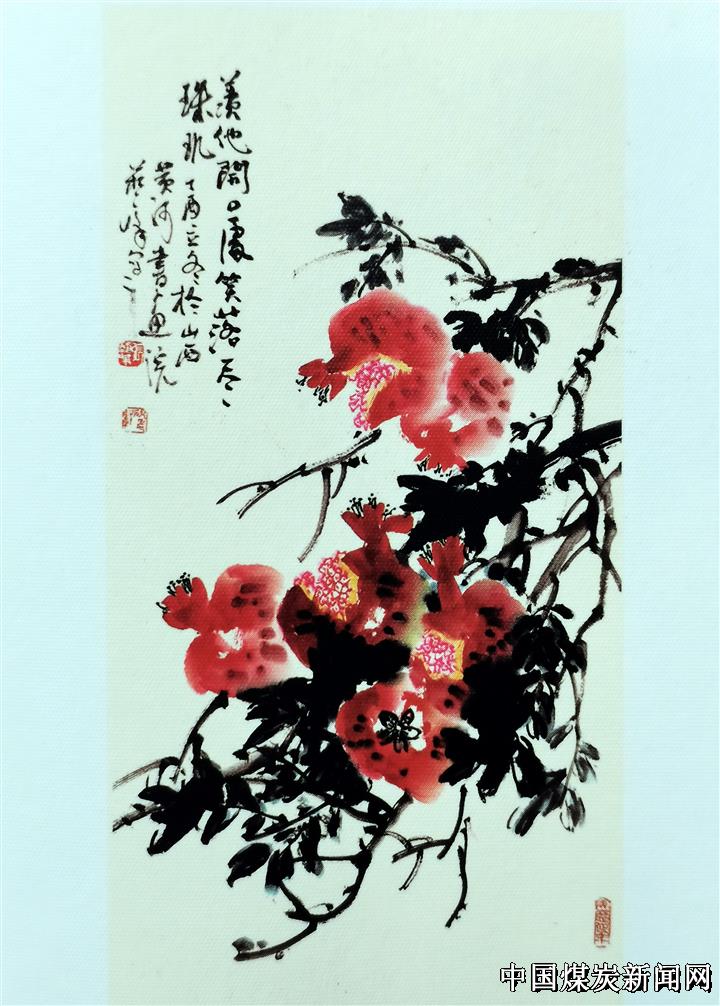 羡他開口處笑落尽
珠玑丁酉立冬於山西
黄河書画院
中国煤炭新闻网